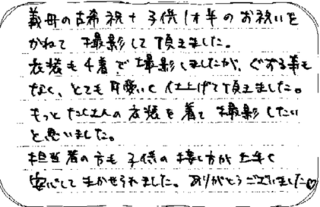 義母の古希祝+子供1才半のお祝いを
かねて撮影して頂きました。
衣装も4着で撮影しましたが、ぐずる事も
なく、とても可愛いく仕上げて頂きました。
もっとたくさんの衣装を着て撮影したい
と思いました。
担当者の方も子供の接し方が上手く
安心してまかせられました。ありがとうございました♡